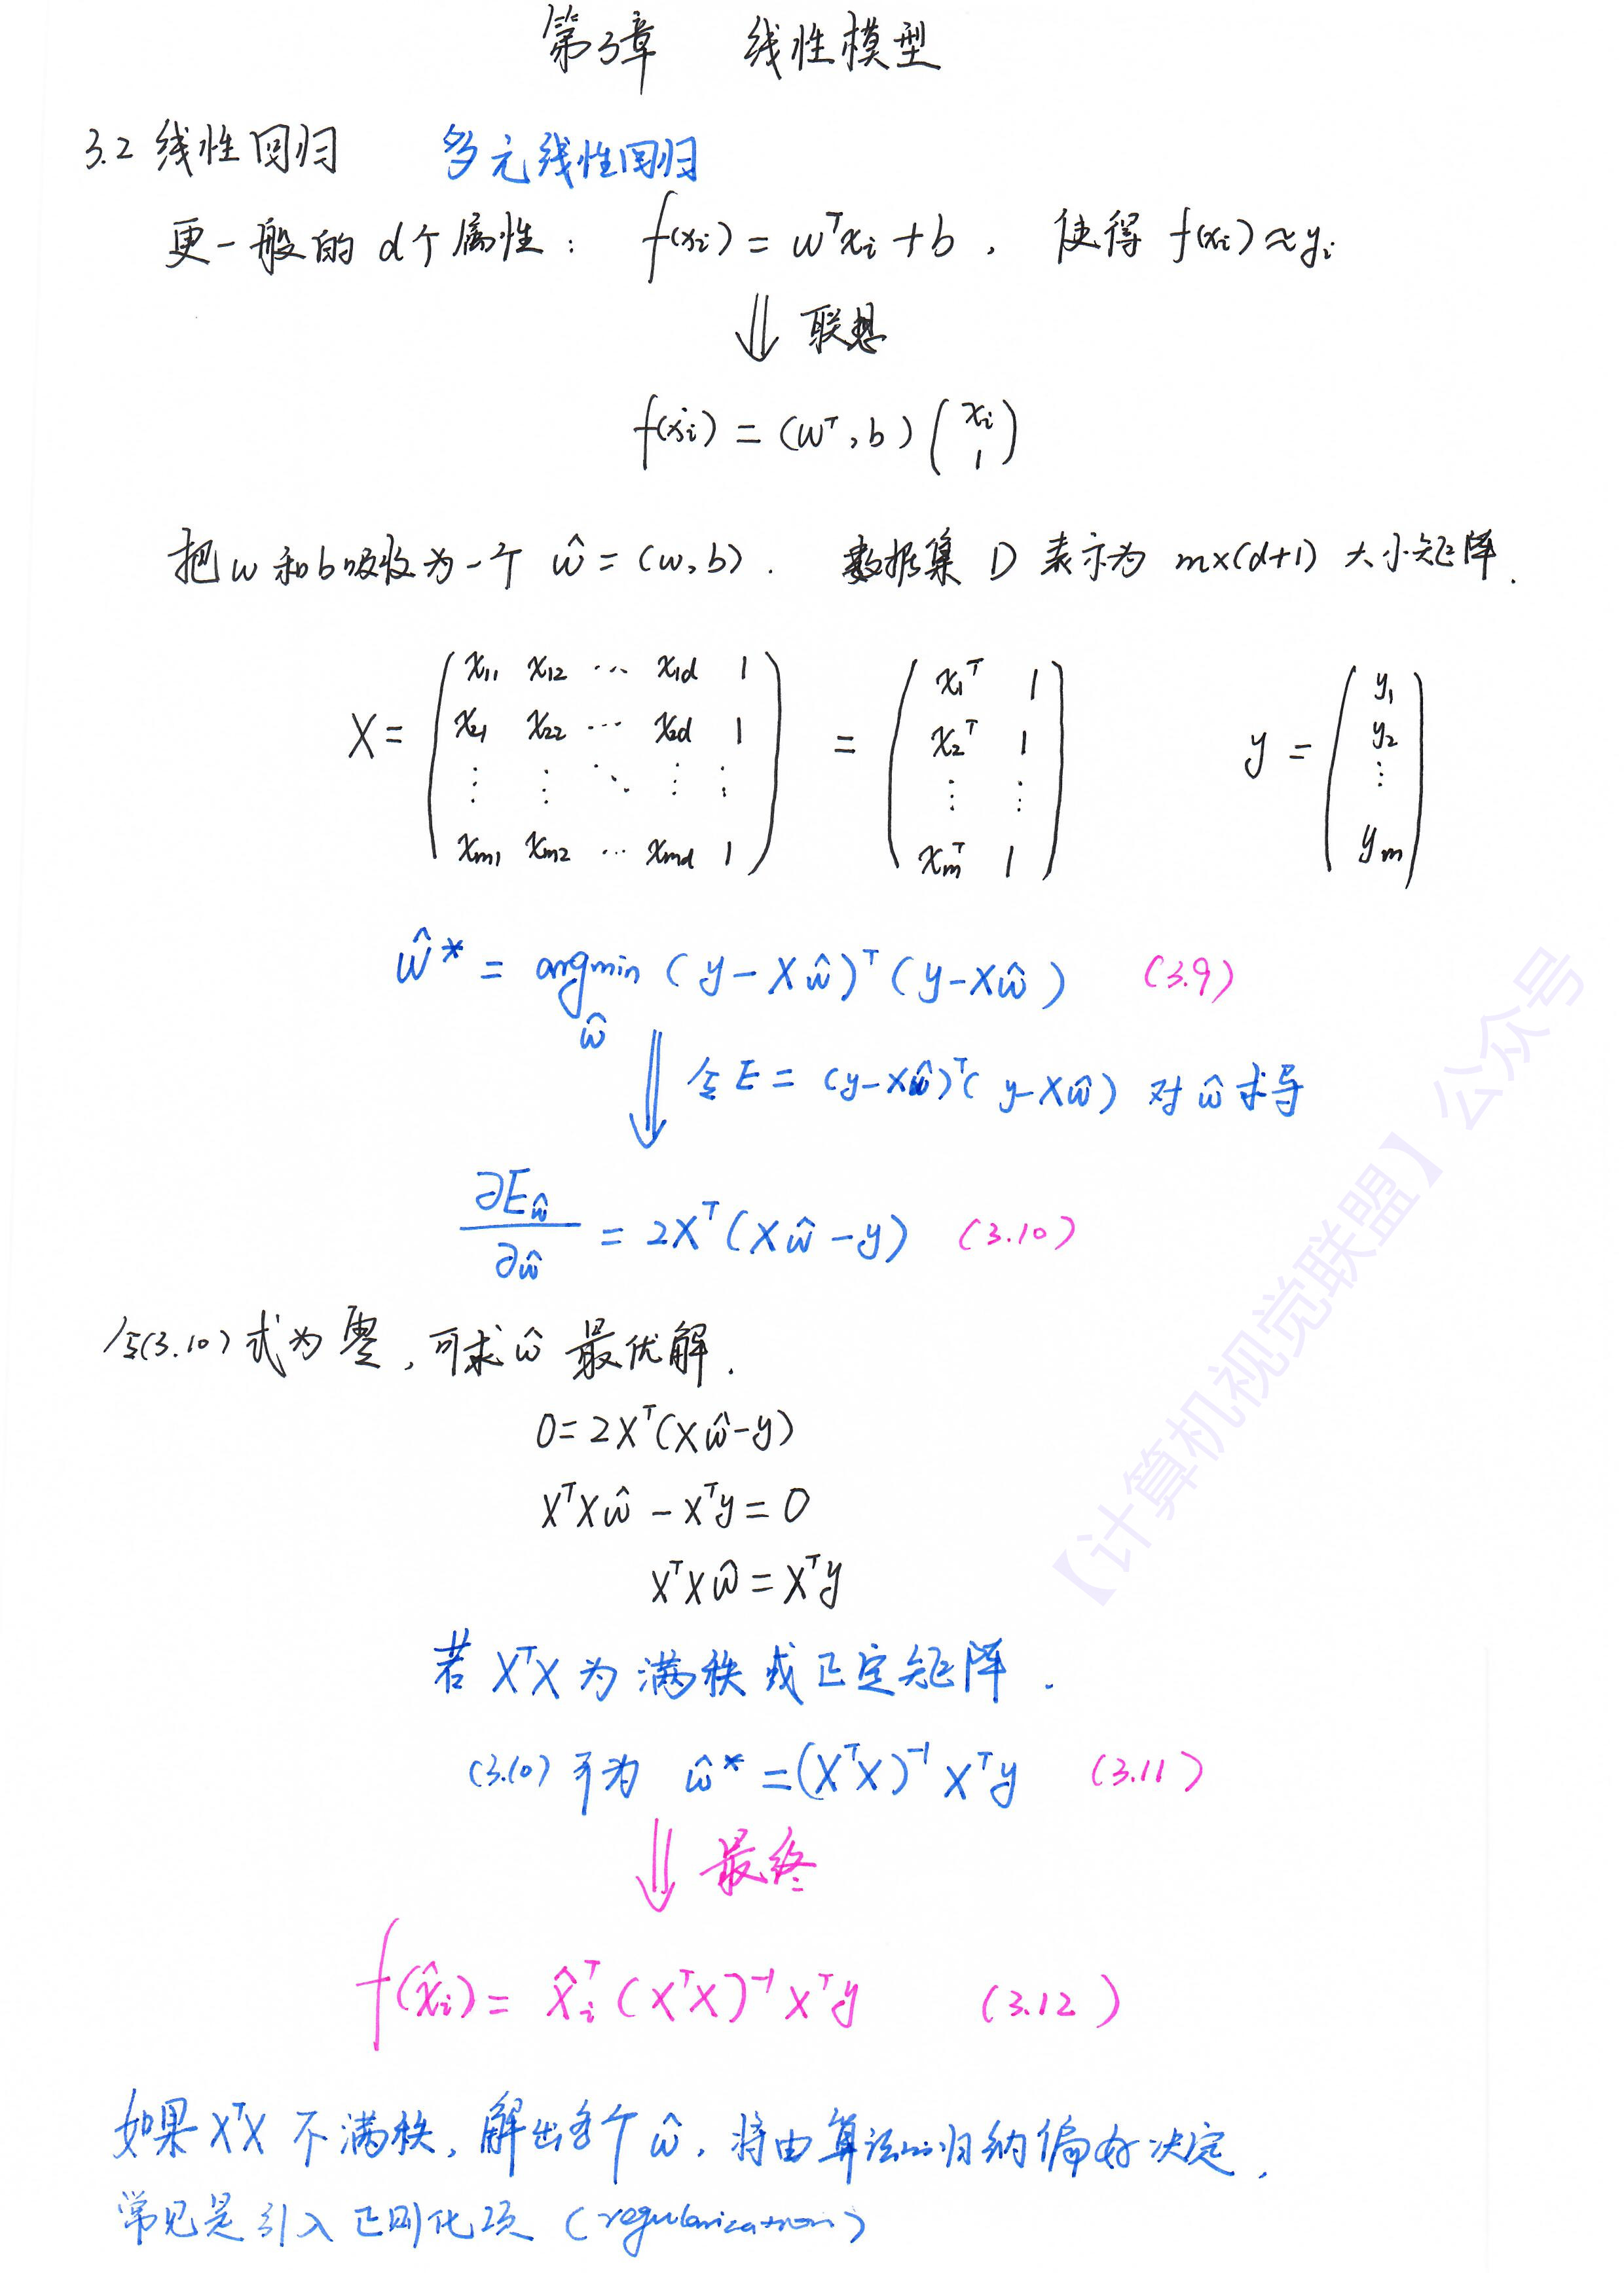 第3章 线性模型
3.2 线性回归 多元线性回归
更一般的 d个属性： f(xᵢ) = wᵀxᵢ + b ， 使得 f(xᵢ) ≈ yᵢ
⇓ 联想
f(xᵢ) = (wᵀ, b) (xᵢ 1)
把 w 和 b 吸收为一个 ŵ = (w, b) . 数据集 D 表示为 m×(d+1) 大小矩阵.
X = (x₁₁ x₁₂ ⋯ x₁d 1; x₂₁ x₂₂ ⋯ x₂d 1; ⋮ ⋮ ⋱ ⋮ ⋮; xm₁ xm₂ ⋯ xmd 1) = (x₁ᵀ 1; x₂ᵀ 1; ⋮ ⋮; xmᵀ 1) y = (y₁; y₂; ⋮; ym)
ŵ* = argmin (y - Xŵ)ᵀ (y - Xŵ) (3.9)
ŵ
⇓ 令 E = (y-Xŵ)ᵀ(y-Xŵ) 对 ŵ 求导
∂Eŵ / ∂ŵ = 2Xᵀ(Xŵ - y) (3.10)
令(3.10)式为零, 可求 ŵ 最优解.
0 = 2Xᵀ(Xŵ - y)
XᵀXŵ - Xᵀy = 0
XᵀXŵ = Xᵀy
若 XᵀX 为满秩或正定矩阵.
(3.10) 可为 ŵ* = (XᵀX)⁻¹Xᵀy (3.11)
⇓ 最终
f(x̂ᵢ) = x̂ᵢᵀ(XᵀX)⁻¹Xᵀy (3.12)
如果 XᵀX 不满秩, 解出多个 ŵ, 将由算法的归纳偏好决定,
常见是引入正则化项 (regularization)
【计算机视觉联盟】公众号